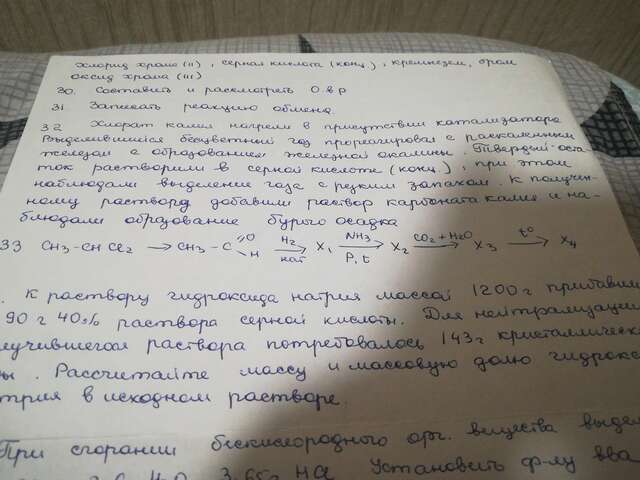 хлорид хрома (II), серная кислота (конц.), кремнезем, бром
оксид хрома (III)
30. Составить и рассмотреть О.в.р
31. Записать реакцию обмена
32 Хлорат калия нагрели в присутствии катализатора
Выделившийся бесцветный газ прореагировал с раскаленным
железом с образованием железной окалины. Твердый ост
ток растворили в серной кислоте (конц.), при этом
наблюдали выделение газа с резким запахом. К получен
ному раствору добавили раствор карбоната калия и на-
блюдали образование бурого осадка
33 CH3-CHCl2 → CH3-C =O H H2 кат → X1 NH3 P, t → X2 CO2+H2O → X3 t° → X4
. К раствору гидроксида натрия массой 1200 г прибавили
90 г 40% раствора серной кислоты. Для нейтрализации
лучившегося раствора потребовалось 143 г кристаллическ
ы. Рассчитайте массу и массовую долю гидрокс
трия в исходном растворе.
При сгорании бескислородного орг. вещества выдел
H2O, 3,65 г HCl Установить ф-лу вва